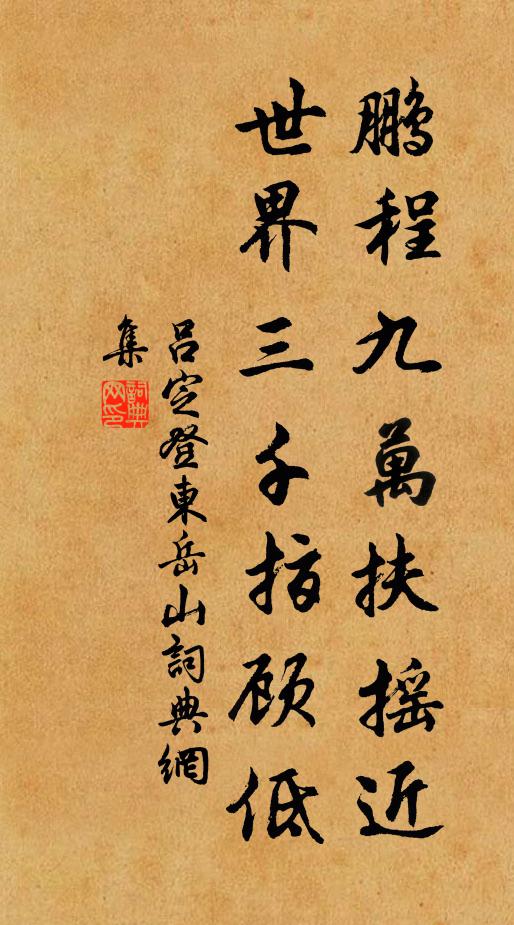 鵬程九萬扶搖近
世界三千指顾低
吕定登東岳山詞典網
集
詞典网印